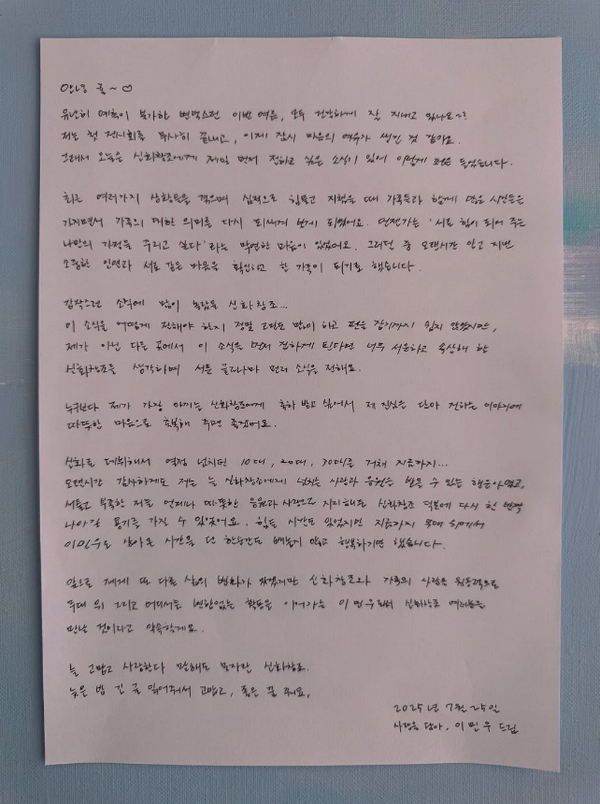 안녕 귤~♡
유난히 예측이 불가한 변덕스런 이번 여름, 모두 건강하게 잘 지내고 있나요~?
저는 첫 전시회를 무사히 끝내고, 이제 잠시 마음의 여유가 생긴 것 같아요.
그래서 오늘은 신화창조에게 제일 먼저 전하고 싶은 소식이 있어 이렇게 펜을 들었습니다.
최근 여러가지 상황들을 겪으며 심적으로 힘들고 지쳤을 때 가족들과 함께 많은 시간들을
가지면서 가족의 대한 의미를 다시 되새기게 되었어요. 언젠가는 '서로 힘이 되어 주는
나만의 가정을 꾸리고 싶다'라는 막연한 마음이 있었어요. 그러던 중 오랜시간 알고 지낸
소중한 인연과 서로 같은 마음을 확인하고 한 가족이 되기로 했습니다.
갑작스런 소식에 많이 놀랐을 신화창조...
이 소식을 어떻게 전해야 할지 정말 고민도 많이 하고 펜을 잡기까지 쉽지 않았지만,
제가 아닌 다른 곳에서 이 소식을 먼저 전하게 된다면 너무 서운하고 속상해 할
신화창조를 생각하며 서툰 글로나마 먼저 소식을 전해요.
누구보다 제가 가장 아끼는 신화창조에게 축하 받고 싶어서 제 진심을 담아 전하는 이야기에
따뜻한 마음으로 축복해 주면 좋겠어요.
신화로 데뷔해서 열정 넘치던 10대, 20대, 30대를 거쳐 지금까지...
오랜시간 감사하게도 저는 늘 신화창조에게 넘치는 사랑과 응원을 받을 수 있는 행운아였고,
서툴고 부족한 저를 언제나 따뜻한 응원과 사랑으로 지지해준 신화창조 덕분에 다시 한 번 더
나아갈 용기를 가질 수 있었어요. 힘든 시간도 있었지만 지금까지 무대 위에서
이민우로 살아온 시간을 단 한순간도 빼놓지 않고 행복하기만 했습니다.
앞으로 제게 또 다른 삶의 변화가 찾아오겠지만 신화창조와 가족의 사랑을 원동력으로
무대 위 그리고 어디서든 변함없는 활동을 이어가는 이민우로써 신화창조 여러분을
만날 것이라고 약속할게요.
늘 고맙고 사랑한다 말해도 모자란 신화창조.
늦은 밤 긴 글 읽어주셔서 고맙고, 좋은 꿈 꿔요.
2025년 7월 25일
사랑을 담아, 이민우 드림